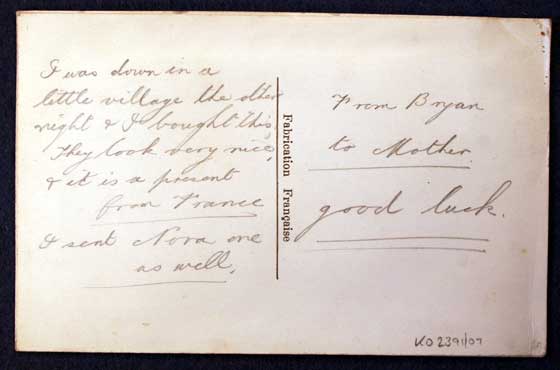 I was down in a
little village the other
night & I bought this,
They look very nice,
& it is a present
from France
I sent Nora one
as well.
Fabrication Française
From Bryan
to Mother.
good luck.
KO2391/07